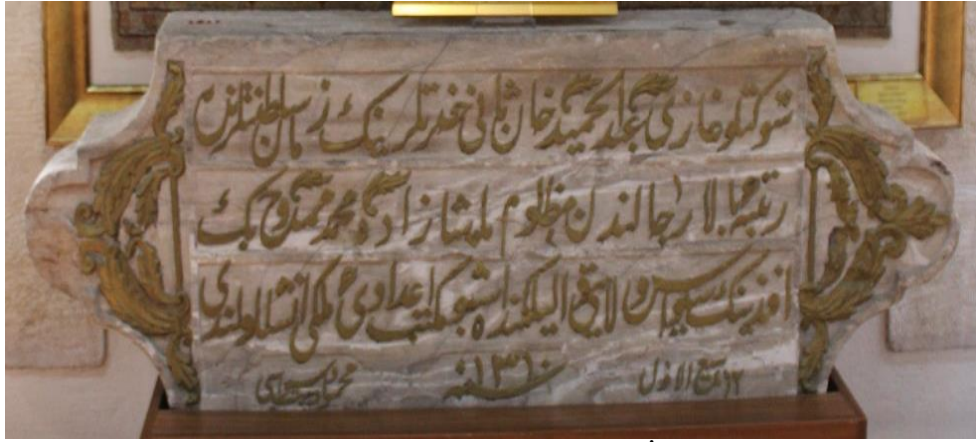 شوكتلو غازى عبد الحميد خان ثانى حضرتلرينك زمان سلطنتلرنده
رتبهٔ بالا رجالندن مظلوم پاشا زاده محمد ممدوح بك
افندينك سيواس ولايتى واليلكنده اشبو مكتب اعدادئ ملكى انشا اولندى
١٦ ربيع الاول سنه ١٣١٠